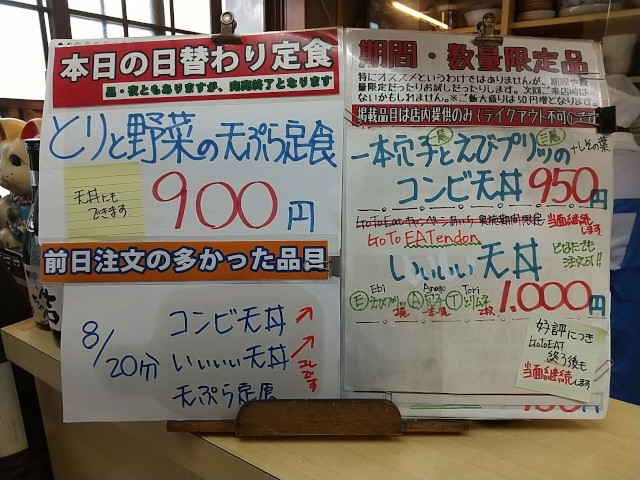 本日の日替わり定食
昼・夜ともありますが、売切終了となります
とりと野菜の天ぷら定食
天丼にも
できます
900円
前日注文の多かった品目
8/20分
コンビ天丼
いいいい天丼
コレです
天ぷら定食
期間・数量限定品
特にオススメというわけではありませんが、期間や数
量限定だったりお試しだったりします。次回ご来店時は
ないかもしれません。※ご飯大盛りは50円増となります。
掲載品目は店内提供のみ(テイクアウト不可)です
一本穴子とえびプリッの
+しその葉
コンビ天丼 950円
GoToEatキャンペーンあいち 実施期間限定
当面継続
します
GoTo EATendon
いいいい天丼
どなたでも
注文可!!
Ebi Anago Tori
Eえびプリッ A穴子 Tとりムネ
2尾 一本 2枚
1,000円
好評につき
GoToEAT
終了後も
当面継続します